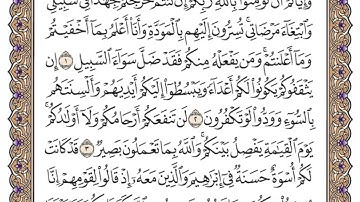 وَإِيَّاكُمْ أَن تُؤْمِنُوا۟ بِٱللَّهِ رَبِّكُمْ إِن كُنتُمْ خَرَجْتُمْ جِهَٰدًا فِى سَبِيلِى
وَٱبْتِغَآءَ مَرْضَاتِى ۚ تُسِرُّونَ إِلَيْهِم بِٱلْمَوَدَّةِ وَأَنَا۠ أَعْلَمُ بِمَآ أَخْفَيْتُمْ
وَمَآ أَعْلَنتُمْ ۚ وَمَن يَفْعَلْهُ مِنكُمْ فَقَدْ ضَلَّ سَوَآءَ ٱلسَّبِيلِ ١ إِن
يَثْقَفُوكُمْ يَكُونُوا۟ لَكُمْ أَعْدَآءً وَيَبْسُطُوٓا۟ إِلَيْكُمْ أَيْدِيَهُمْ وَأَلْسِنَتَهُم
بِٱلسُّوٓءِ وَوَدُّوا۟ لَوْ تَكْفُرُونَ ٢ لَن تَنفَعَكُمْ أَرْحَامُكُمْ وَلَآ أَوْلَٰدُكُمْ ۚ
يَوْمَ ٱلْقِيَٰمَةِ يَفْصِلُ بَيْنَكُمْ ۚ وَٱللَّهُ بِمَا تَعْمَلُونَ بَصِيرٌ ٣ قَدْ كَانَتْ
لَكُمْ أُسْوَةٌ حَسَنَةٌ فِىٓ إِبْرَٰهِيمَ وَٱلَّذِينَ مَعَهُۥٓ إِذْ قَالُوا۟ لِقَوْمِهِمْ إِنَّا